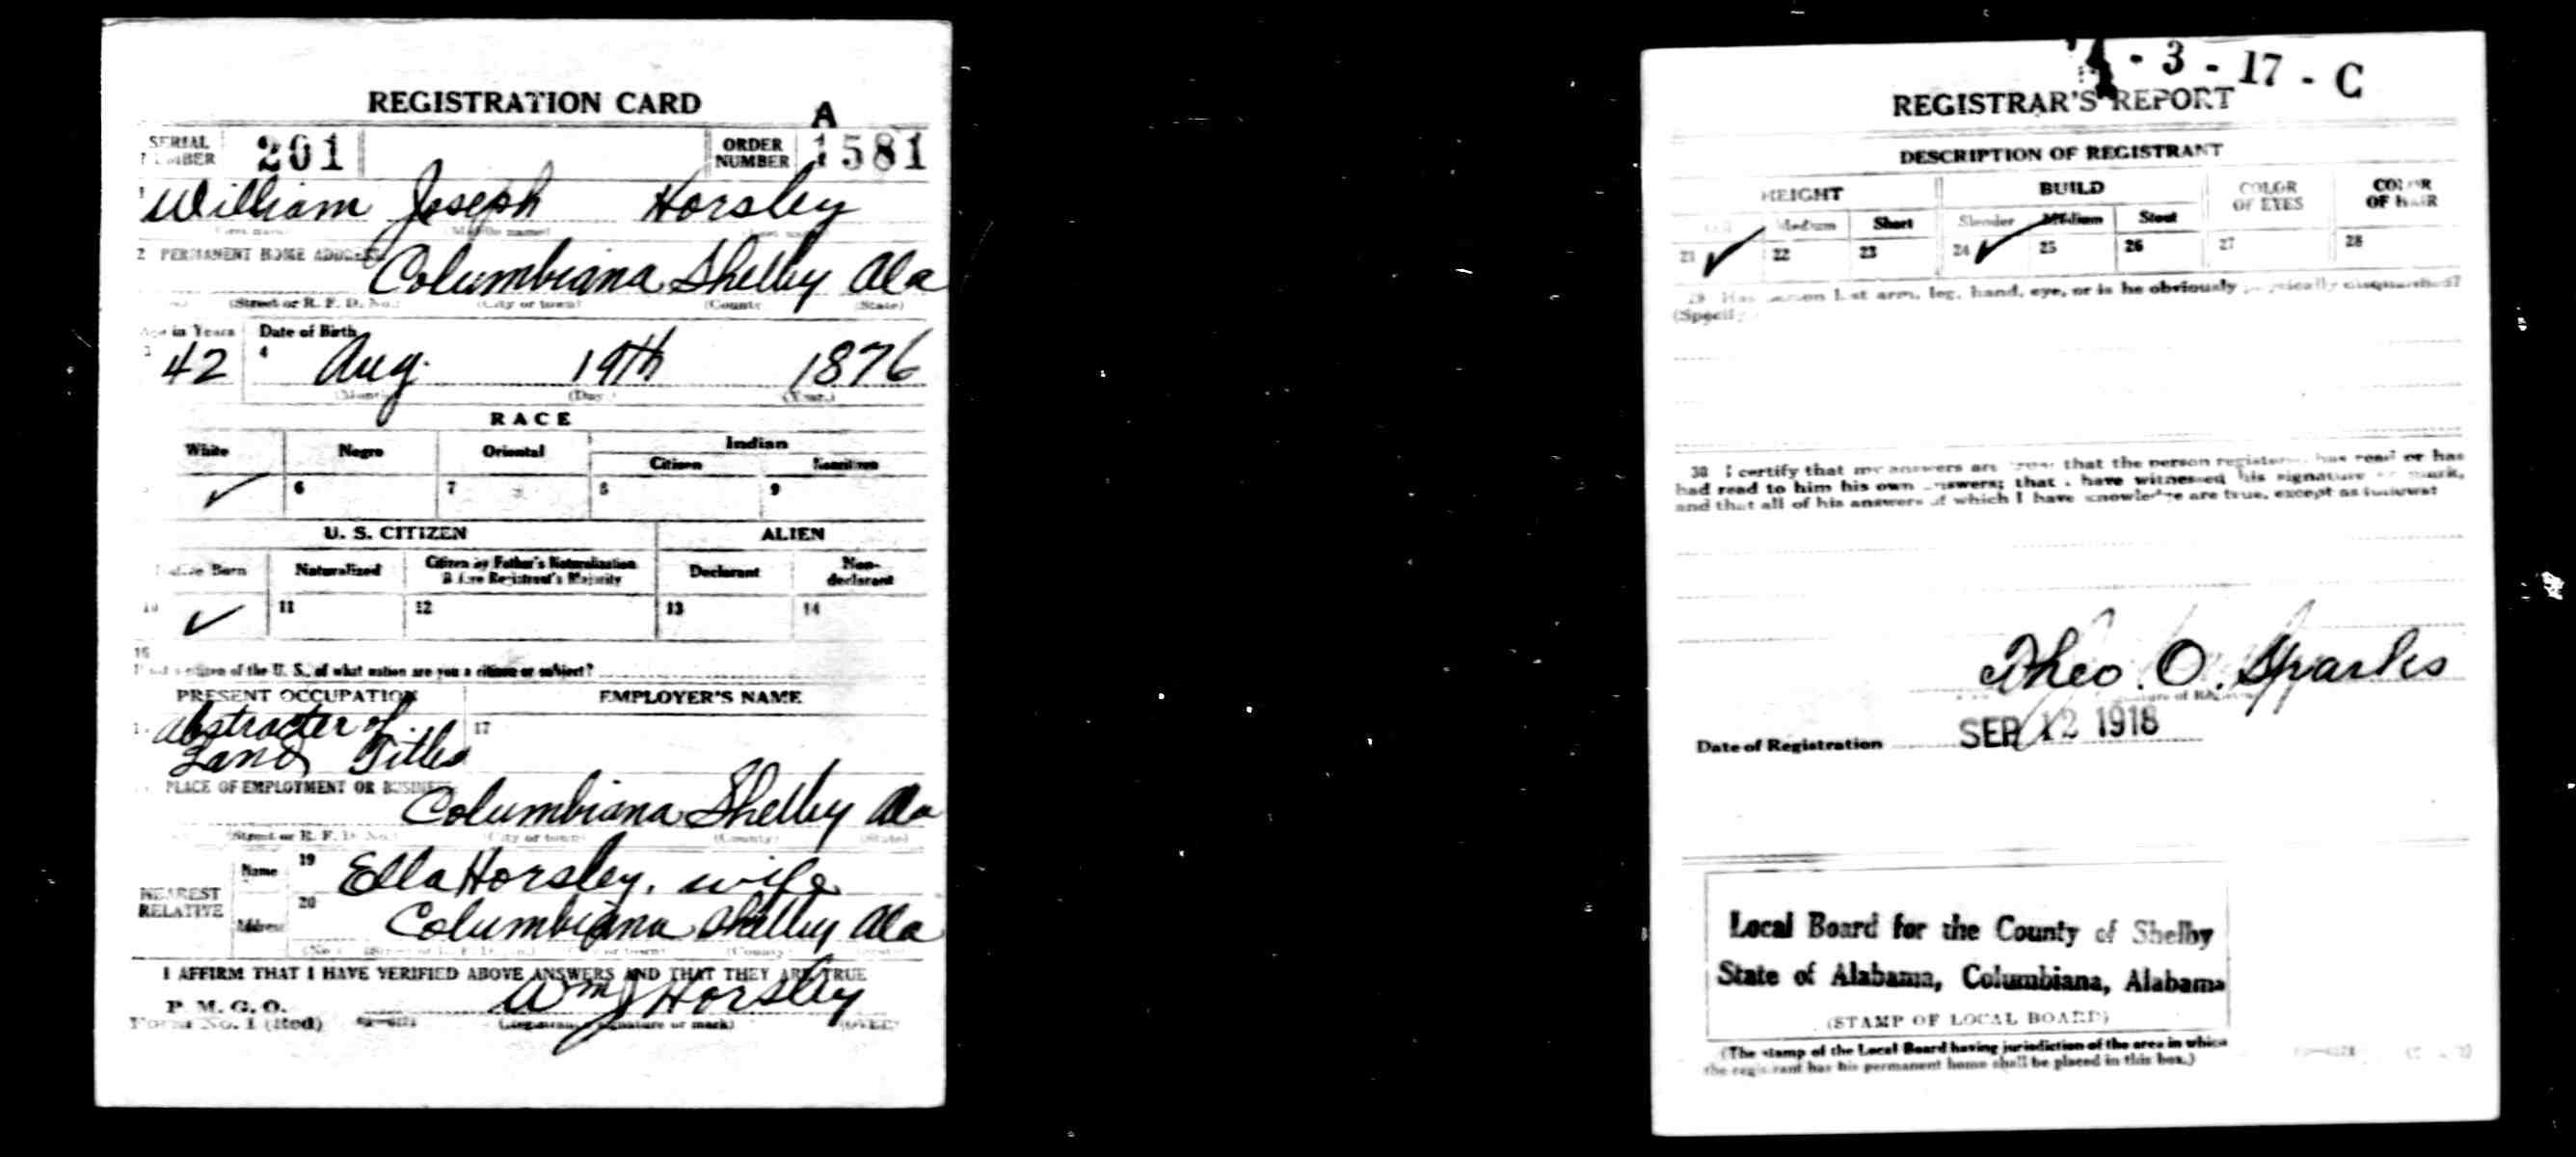 REGISTRATION CARD
A
SERIAL NUMBER 201 ORDER NUMBER 1581
1 William Joseph Horsley
(Middle name)
2 PERMANENT HOME ADDRESS
Columbiana Shelby Ala
(Street or R. F. D. No.) (City or town) (County (State)
Age in Years Date of Birth
3 42 4 Aug. 19th 1876
(Month) (Day.) (Year.)
RACE
White Negro Oriental Indian
Citizen Noncitizen
✓ 6 7 8 9
U. S. CITIZEN ALIEN
Native Born Naturalized Citizen by Father's Naturalization Before Registrant's Majority Declarant Non-declarant
10 ✓ 11 12 13 14
15
If not a citizen of the U. S., of what nation are you a citizen or subject?
PRESENT OCCUPATION EMPLOYER'S NAME
Abstracter of 17
Land Titles
PLACE OF EMPLOYMENT OR BUSINESS
Columbiana Shelby Ala
(Street or R. F. D. No.) (City or town) (County) (State)
NEAREST RELATIVE
Name 19 Ella Horsley. wife
Address 20 Columbiana Shelby Ala
I AFFIRM THAT I HAVE VERIFIED ABOVE ANSWERS AND THAT THEY ARE TRUE
P. M. G. O.
Form No. 1 (Red) Wm J Horsley
(Registrant's signature or mark) (OVER)
- 3 - 17 - C
REGISTRAR'S REPORT
DESCRIPTION OF REGISTRANT
HEIGHT BUILD COLOR OF EYES COLOR OF HAIR
Medium Short Slender Medium Stout
21 ✓ 22 23 24 ✓ 25 26 27 28
29 Has person lost arm, leg, hand, eye, or is he obviously physically disqualified?
(Specify
30 I certify that my answers are true; that the person registered has read or has
had read to him his own answers; that I have witnessed his signature or mark,
and that all of his answers of which I have knowledge are true, except as follows:
Theo. O. Sparks
Date of Registration SEP 12 1918
Local Board for the County of Shelby
State of Alabama, Columbiana, Alabama
(STAMP OF LOCAL BOARD)
(The stamp of the Local Board having jurisdiction of the area in which
the registrant has his permanent home shall be placed in this box.)